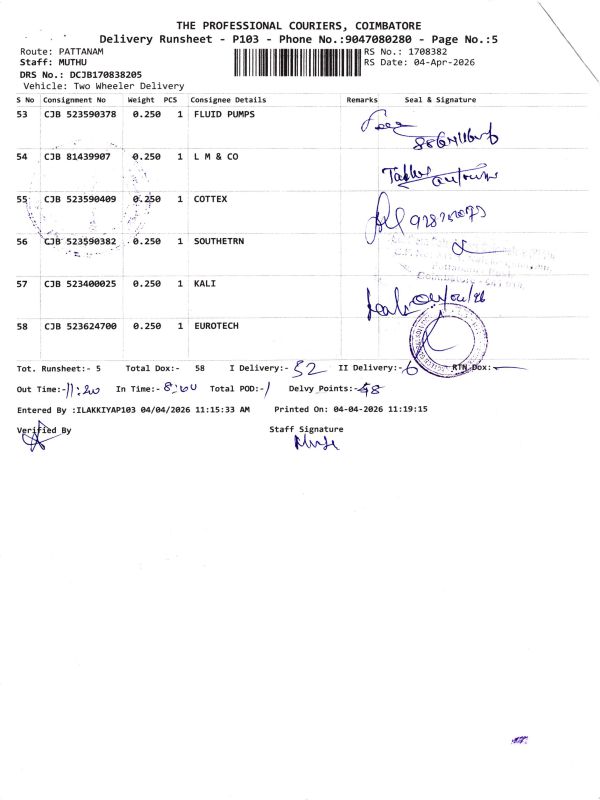 THE PROFESSIONAL COURIERS, COIMBATORE
Delivery Runsheet - P103 - Phone No.:9047080280 - Page No.:5
Route: PATTANAM RS No.: 1708382
Staff: MUTHU RS Date: 04-Apr-2026
DRS No.: DCJB170838205
Vehicle: Two Wheeler Delivery
S No Consignment No Weight PCS Consignee Details Remarks Seal & Signature
53 CJB 523590378 0.250 1 FLUID PUMPS
54 CJB 81439907 0.250 1 L M & CO
55 CJB 523590409 0.250 1 COTTEX
56 CJB 523590382 0.250 1 SOUTHETRN
57 CJB 523400025 0.250 1 KALI
58 CJB 523624700 0.250 1 EUROTECH
Tot. Runsheet:- 5 Total Dox:- 58 I Delivery:- 52 II Delivery:- 6 RTN Dox:-
Out Time:- 11:20 In Time:- 8:00 Total POD:- 1 Delvy Points:- 58
Entered By :ILAKKIYAP103 04/04/2026 11:15:33 AM Printed On: 04-04-2026 11:19:15
Verified By Staff Signature